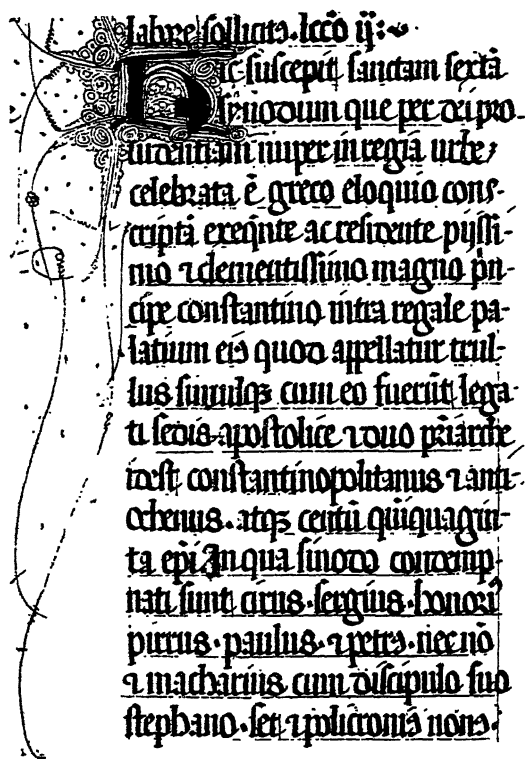 labore sollicitꝰ. lcc̄o ij:
Hic suscepit sanctam sextā
synodum que per dei pro
uidentiam nuper in regia urbe
celebrata ē greco eloquio cons-
cripta exeqn̄te ac residente pijssi-
mo ⁊ clementissimo magno pͥn-
cipe constantino intra regale pa-
latium eiꝰ quod appellatur trul-
lus simulqꝫ cum eo fuerūt lega-
ti sedis apostolice ⁊ duo pͥarche
idest constantinopolitanus ⁊ anti-
ochenus. atqꝫ centū quīquagin-
ta ep̄i In qua sinodo condemp-
nati sunt cirus. sergius. honoriꝰ
pirrus. paulus. ⁊ petrꝰ. nec nō
⁊ macharius cum discipulo suo
stephano. set ⁊ policroniꝰ nouꝰ.